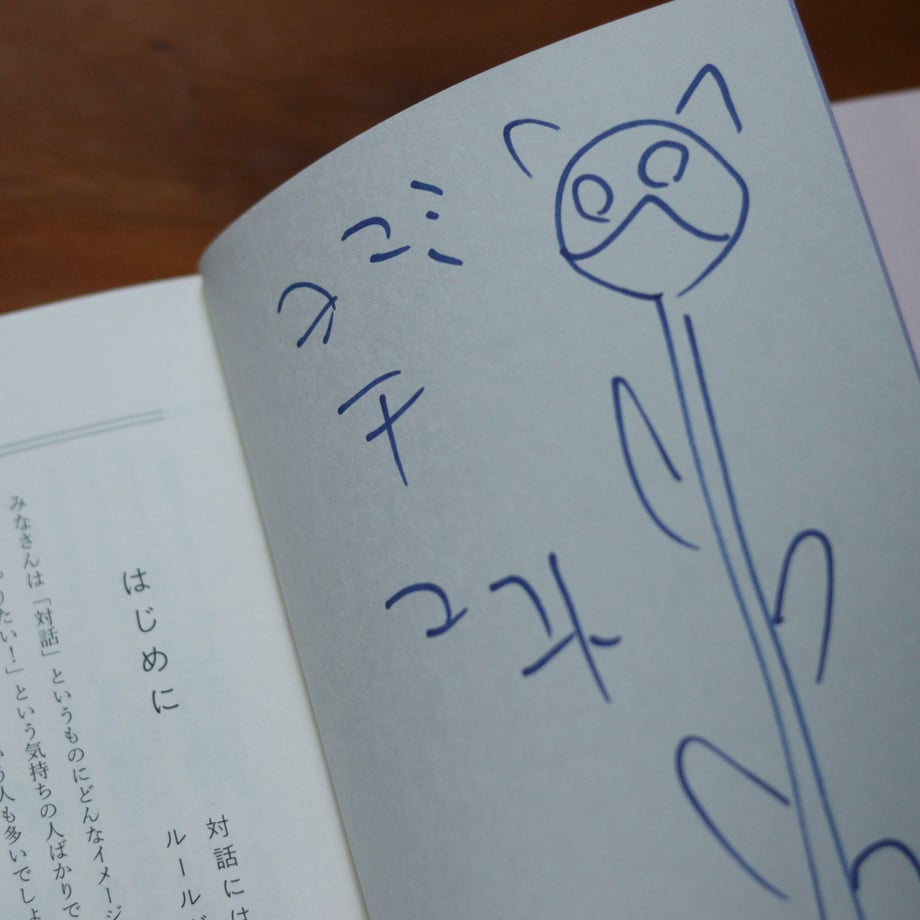 コミ
チ
はじめに
対話には
ルール
みなさんは「対話」というものにどんなイメージ
りたい！」という気持ちの人ばかりで
う人も多いでしょ